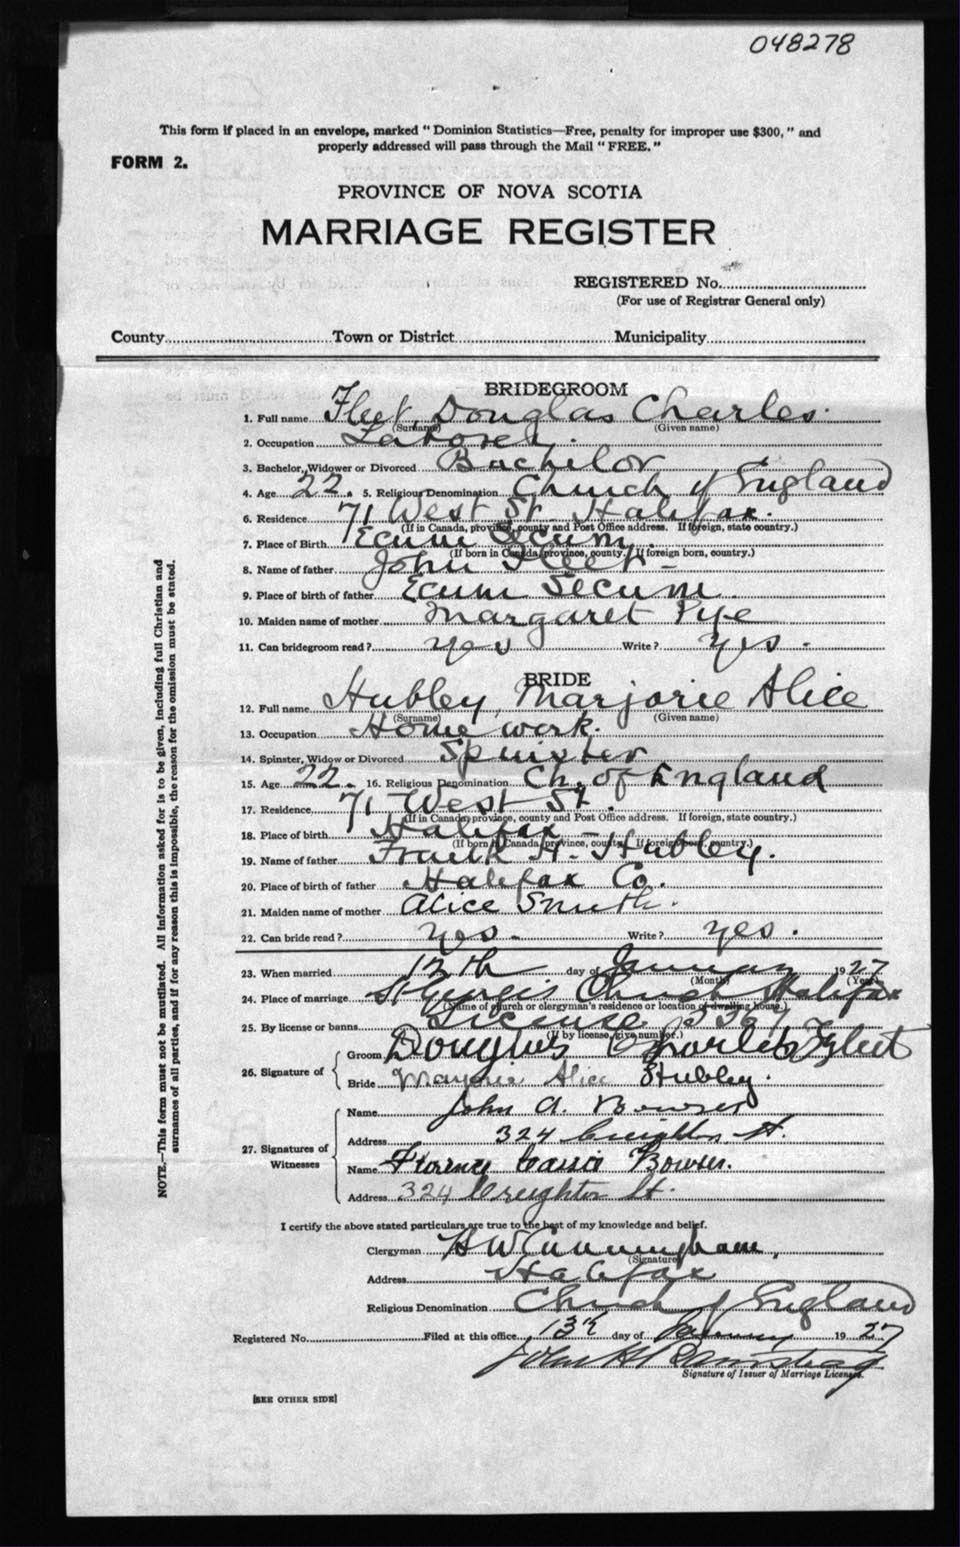 048278
This form if placed in an envelope, marked "Dominion Statistics—Free, penalty for improper use $300," and
properly addressed will pass through the Mail "FREE."
FORM 2.
PROVINCE OF NOVA SCOTIA
MARRIAGE REGISTER
REGISTERED No.
(For use of Registrar General only)
County Town or District Municipality
BRIDEGROOM
1. Full name Fleet, Douglas Charles.
(Surname) (Given name)
2. Occupation Laborer.
3. Bachelor, Widower or Divorced Bachelor
4. Age 22. 5. Religious Denomination Church of England
6. Residence 71 West St. Halifax.
(If in Canada, province, county and Post Office address. If foreign, state country.)
7. Place of Birth Ecum Secum.
(If born in Canada, province, county. If foreign born, country.)
8. Name of father John Fleet-
9. Place of birth of father Ecum Secum.
10. Maiden name of mother Margaret Pye
11. Can bridegroom read? yes Write? yes.
BRIDE
12. Full name Hubley, Marjorie Alice
(Surname) (Given name)
13. Occupation Home work.
14. Spinster, Widow or Divorced Spinster
15. Age 22. 16. Religious Denomination Ch. of England
17. Residence 71 West St.
(If in Canada, province, county and Post Office address. If foreign, state country.)
18. Place of birth Halifax-
(If born in Canada, province, county. If foreign born, country.)
19. Name of father Frank H. Hubley.
20. Place of birth of father Halifax Co.
21. Maiden name of mother Alice Smith.
22. Can bride read? yes. Write? yes.
23. When married 12th day of January 1927
(Month) (Year)
24. Place of marriage St George's Church Halifax
(Name of church or clergyman's residence or location of dwelling house.)
25. By license or banns License
(If by license, give number.)
26. Signature of
Groom Douglas Charles Fleet
Bride Marjorie Alice Hubley.
27. Signatures of Witnesses
Name John A. Bowser
Address 324 Creighton St.
Name Cassie Bowser.
Address 324 Creighton St.
I certify the above stated particulars are true to the best of my knowledge and belief.
Clergyman H W Cunningham,
(Signature)
Address Halifax
Religious Denomination Church of England
Registered No. Filed at this office 13th day of January 1927
John H
Signature of Issuer of Marriage Licenses.
[SEE OTHER SIDE]
NOTE.—This form must not be mutilated. All information asked for is to be given, including full Christian and
surnames of all parties, and if for any reason this is impossible, the reason for the omission must be stated.